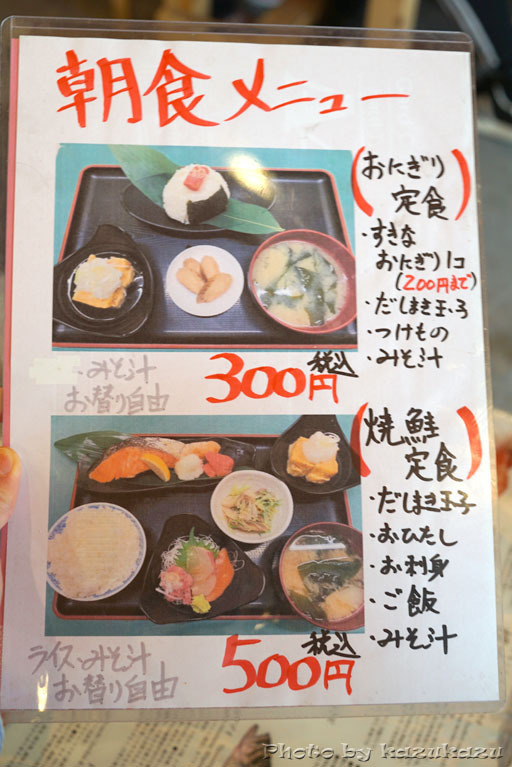 朝食メニュー
(おにぎり
定食)
・すきな
おにぎり1コ
(200円まで)
・だしまき玉子
・つけもの
・みそ汁
・みそ汁
お替り自由
300円
税込
(焼鮭
定食)
・だしまき玉子
・おひたし
・お刺身
・ご飯
・みそ汁
ライス・みそ汁
お替り自由
500円
税込
Photo by kazukazu